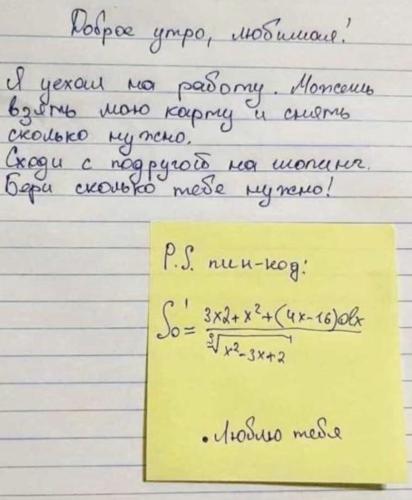 Доброе утро, любимая!
Я уехал на работу. Можешь
взять мою карту и снять
сколько нужно.
Сходи с подругой на шопинг.
Бери сколько тебе нужно!
P.S. пин-код:
S₀¹ = (3x2+x²+(4x-16)dx) / ∛(x²-3x+2)
•Люблю тебя